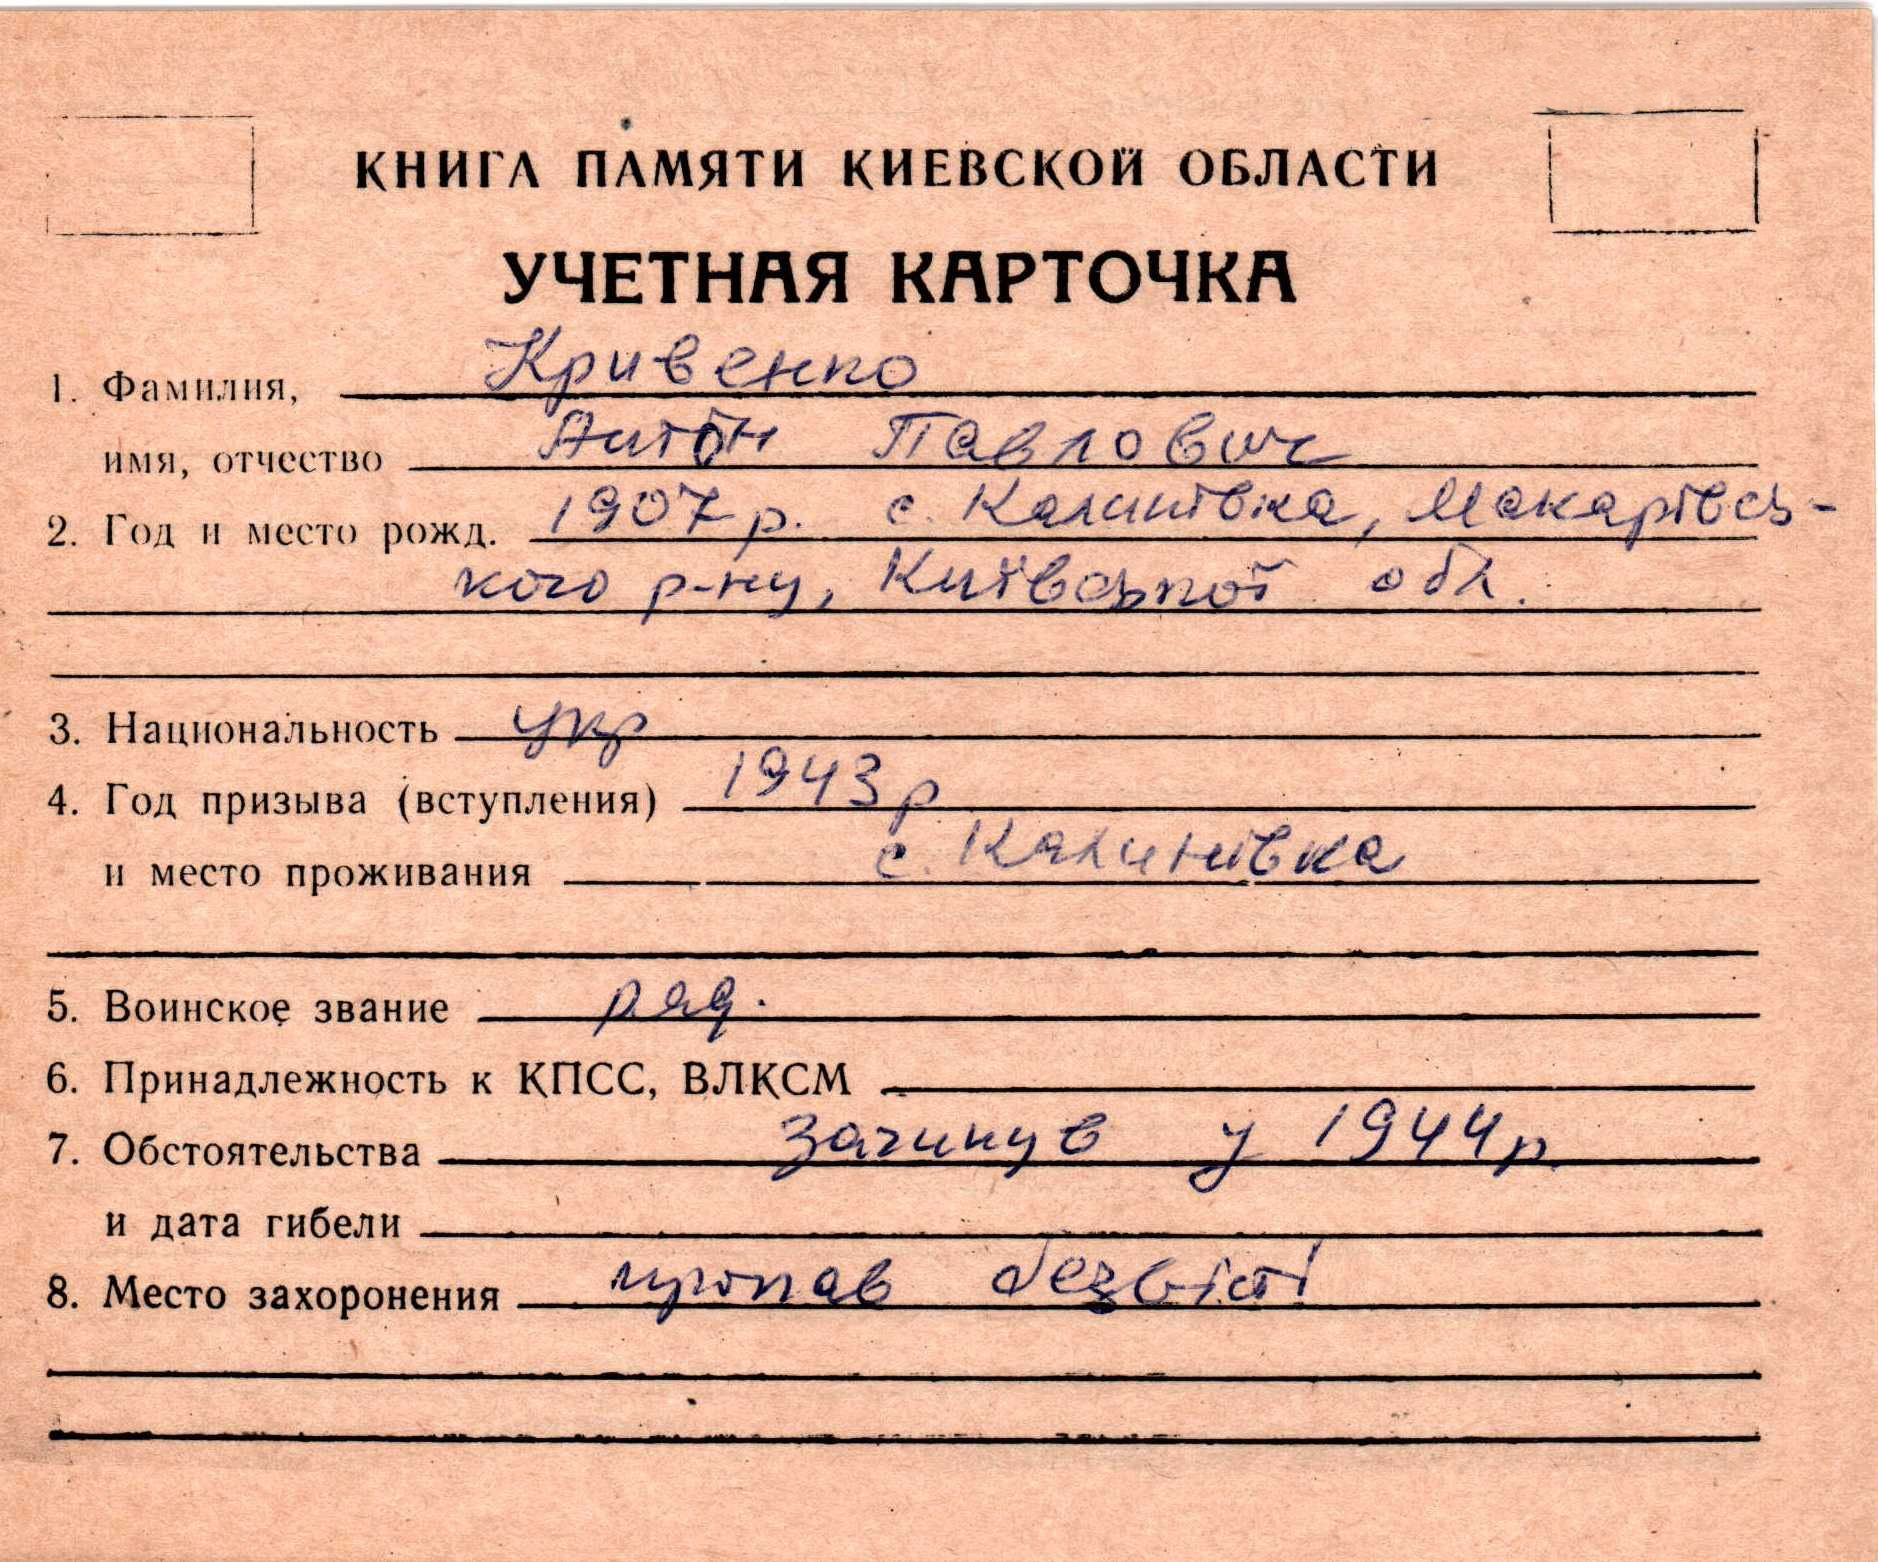 КНИГА ПАМЯТИ КИЕВСКОЙ ОБЛАСТИ
УЧЕТНАЯ КАРТОЧКА
1. Фамилия, Кривенко
имя, отчество Антон Павлович
2. Год и место рожд. 1907 р. с. Калинівка, Макарівсь-
кого р-ну, Київської обл.
3. Национальность укр
4. Год призыва (вступления) 1943 р
и место проживания с. Калинівка
5. Воинское звание ряд.
6. Принадлежность к КПСС, ВЛКСМ
7. Обстоятельства загинув у 1944 р.
и дата гибели
8. Место захоронения пропав безвісті